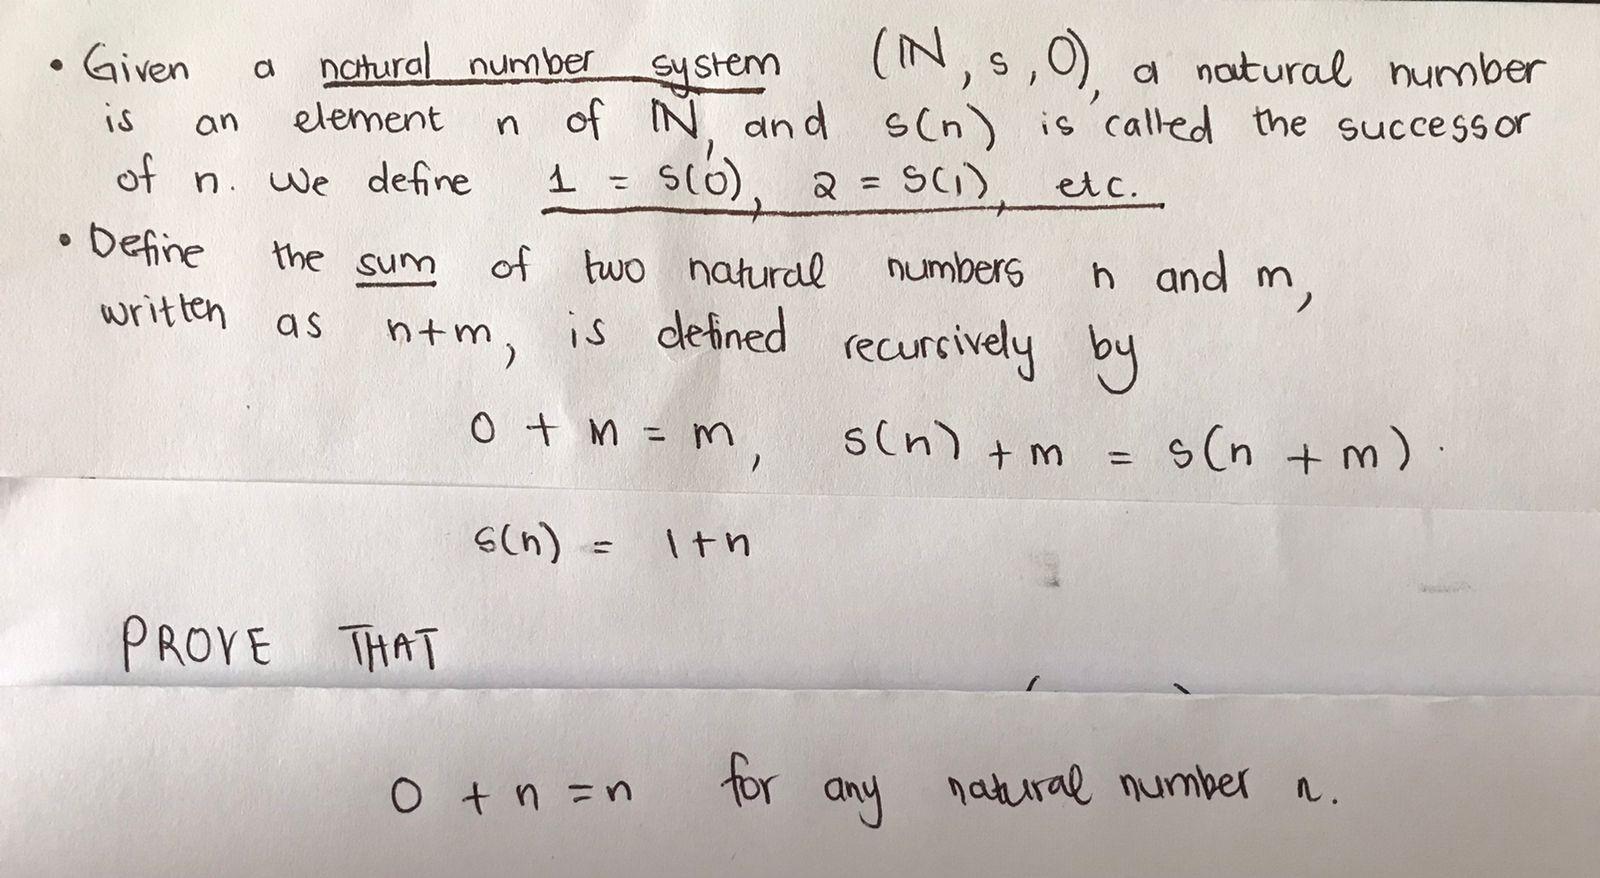 • Given a natural number system (ℕ, s, 0), a natural number
is an element n of ℕ, and s(n) is called the successor
of n. We define 1 = s(0), 2 = s(1), etc.
• Define the sum of two natural numbers n and m,
written as n+m, is defined recursively by
0 + m = m, s(n) + m = s(n + m).
s(n) = 1+n
PROVE THAT
0 + n = n for any natural number n.